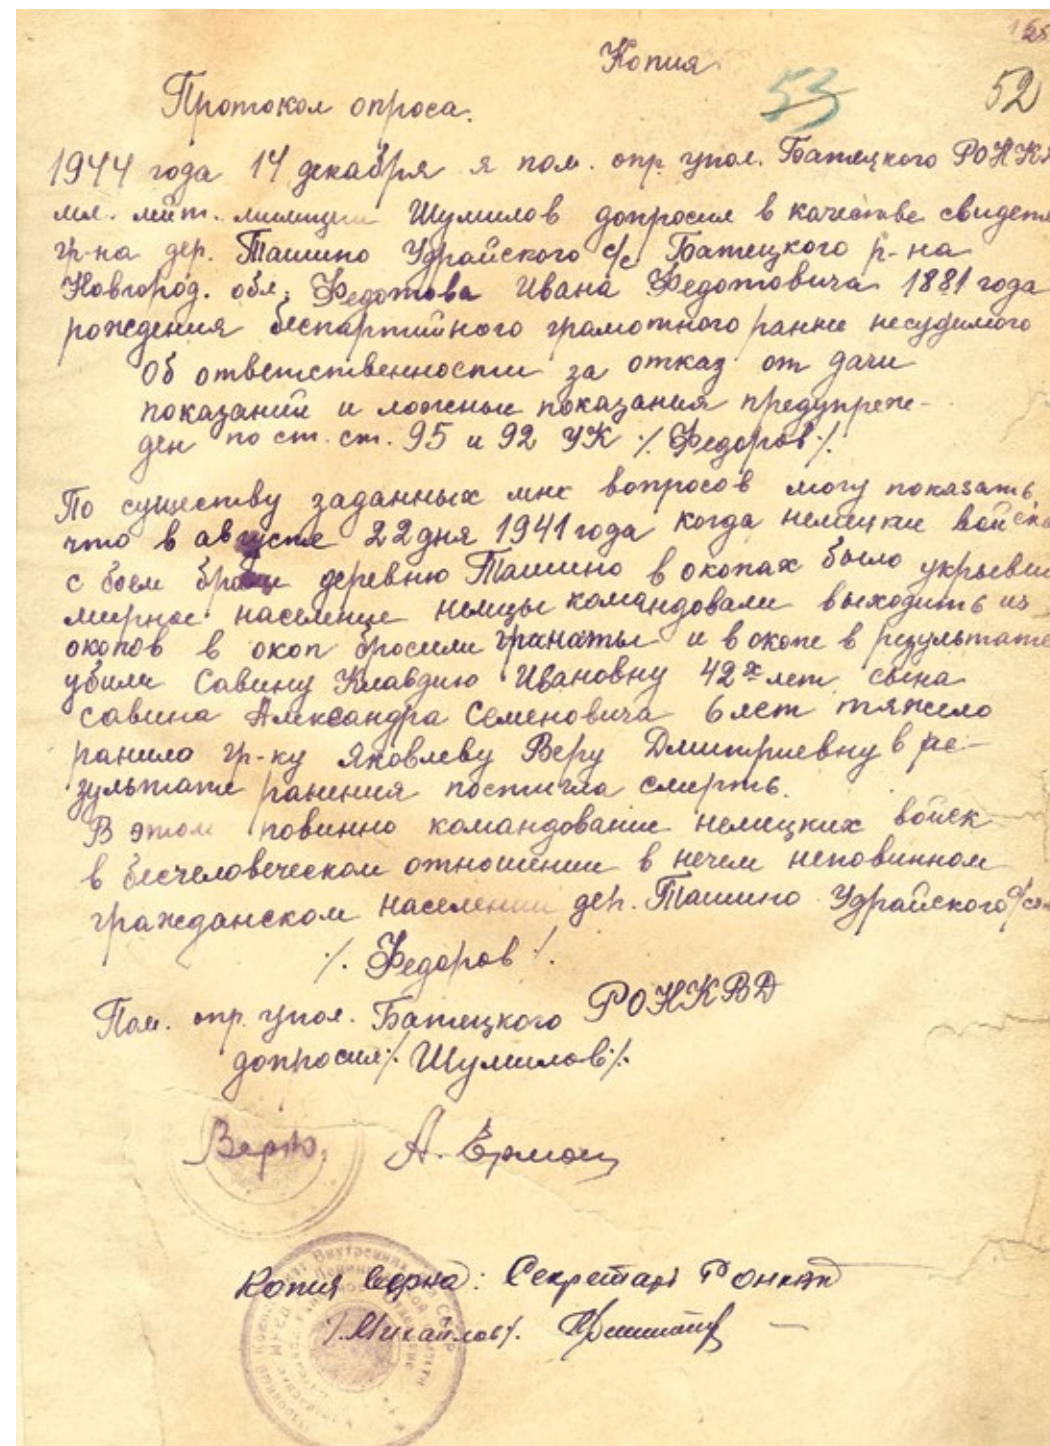 Копия
53
52
Протокол опроса.
1944 года 14 декабря я пом. опр. упол. Батецкого РОНКВ
мл. лейт. милиции Шумилов допросил в качестве свидете
гр-на дер. Ташино Удрайского с/с Батецкого р-на
Новгород. обл. Федотова Ивана Федотовича 1881 года
рождения беспартийного грамотного ранее несудимого
Об ответственности за отказ от дачи
показаний и ложные показания предупреж-
ден по ст. ст. 95 и 92 УК /. Федоров ./.
По существу заданных мне вопросов могу показать,
что в августе 22 дня 1941 года когда немецкие войска
с боем брали деревню Ташино в окопах было укрывши
мирное население немцы командовали выходить из
окопов в окоп бросили гранаты и в окопе в результате
убили Савину Клавдию Ивановну 42х лет сына
Савина Александра Семеновича 6 лет тяжело
ранило гр-ку Яковлеву Веру Дмитриевну в ре-
зультате ранения постигла смерть.
В этом повинно командование немецких войск
в бесчеловеческом отношении в нечем неповинном
гражданском населении дер. Ташино Удрайского с/сов
/. Федоров /.
Пом. опр. упол. Батецкого РОНКВД
допросил /. Шумилов ./.
Верно: А.
Копия верна: Секретарь РОНКВД
/. Михайлов /.